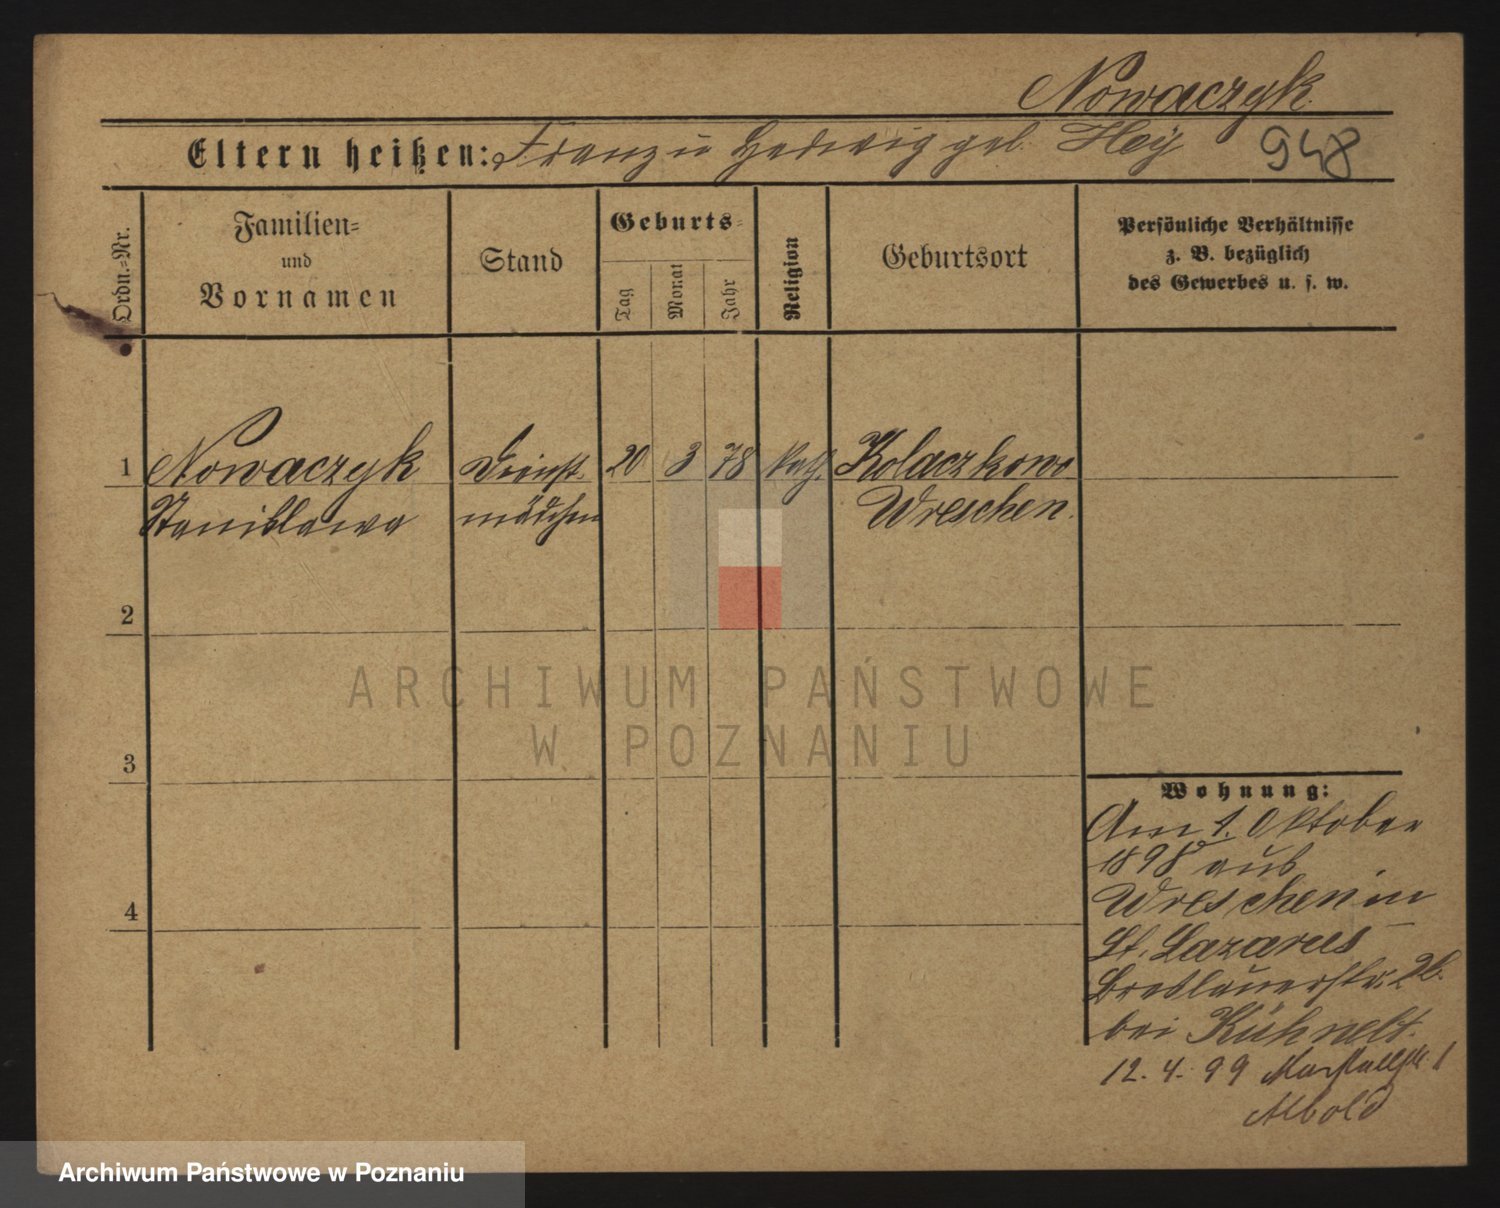 Nowaczyk.
Eltern heißen: Franz u Hedwig geb. Hey 948
Ordn.-Nr.
Familien-
und
Vornamen
Stand
Geburts-
Tag
Monat
Jahr
Religion
Geburtsort
Persönliche Verhältnisse
z. B. bezüglich
des Gewerbes u. s. w.
1 Nowaczyk Dienst 20 3 78 kath. Kolaczkowo
Stanislawa mädchen Wreschen.
2
3
4
Wohnung:
Am 1. Oktober
1898 aus
Wreschen in
St. Lazarus
Breslauerstr. 26.
bei Kühnelt.
12. 4. 99 Marstallstr. 1
Albold
ARCHIWUM PAŃSTWOWE
W POZNANIU
Archiwum Państwowe w Poznaniu